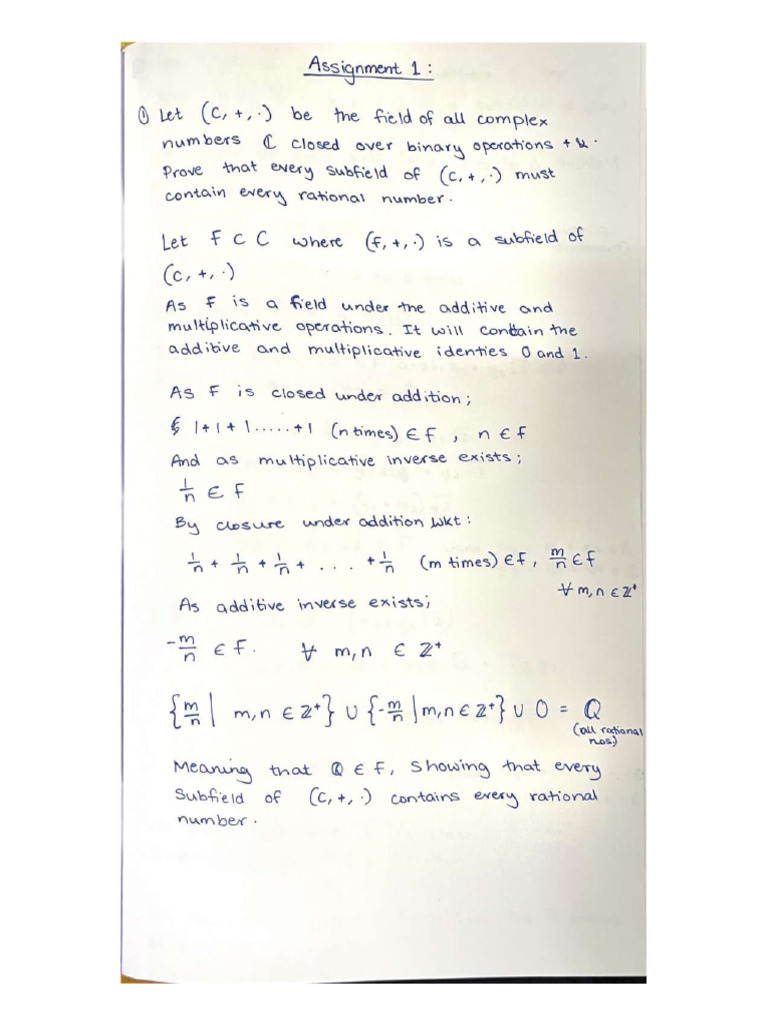 Assignment 1 :
① Let (C, +, ·) be the field of all complex
numbers ℂ closed over binary operations + & ·
Prove that every subfield of (C, +, ·) must
contain every rational number.
Let F ⊂ C where (F, +, ·) is a subfield of
(C, +, ·)
As F is a field under the additive and
multiplicative operations. It will contain the
additive and multiplicative identies 0 and 1.
As F is closed under addition;
1+1+1.....+1 (n times) ∈ F , n ∈ F
And as multiplicative inverse exists;
1/n ∈ F
By closure under addition wkt:
1/n + 1/n + 1/n + . . . + 1/n (m times) ∈ F, m/n ∈ F
∀ m, n ∈ ℤ⁺
As additive inverse exists;
-m/n ∈ F. ∀ m, n ∈ ℤ⁺
{m/n | m, n ∈ ℤ⁺} ∪ {-m/n | m, n ∈ ℤ⁺} ∪ 0 = Q
(all rational
nos)
Meaning that Q ∈ F, Showing that every
Subfield of (C, +, ·) contains every rational
number.